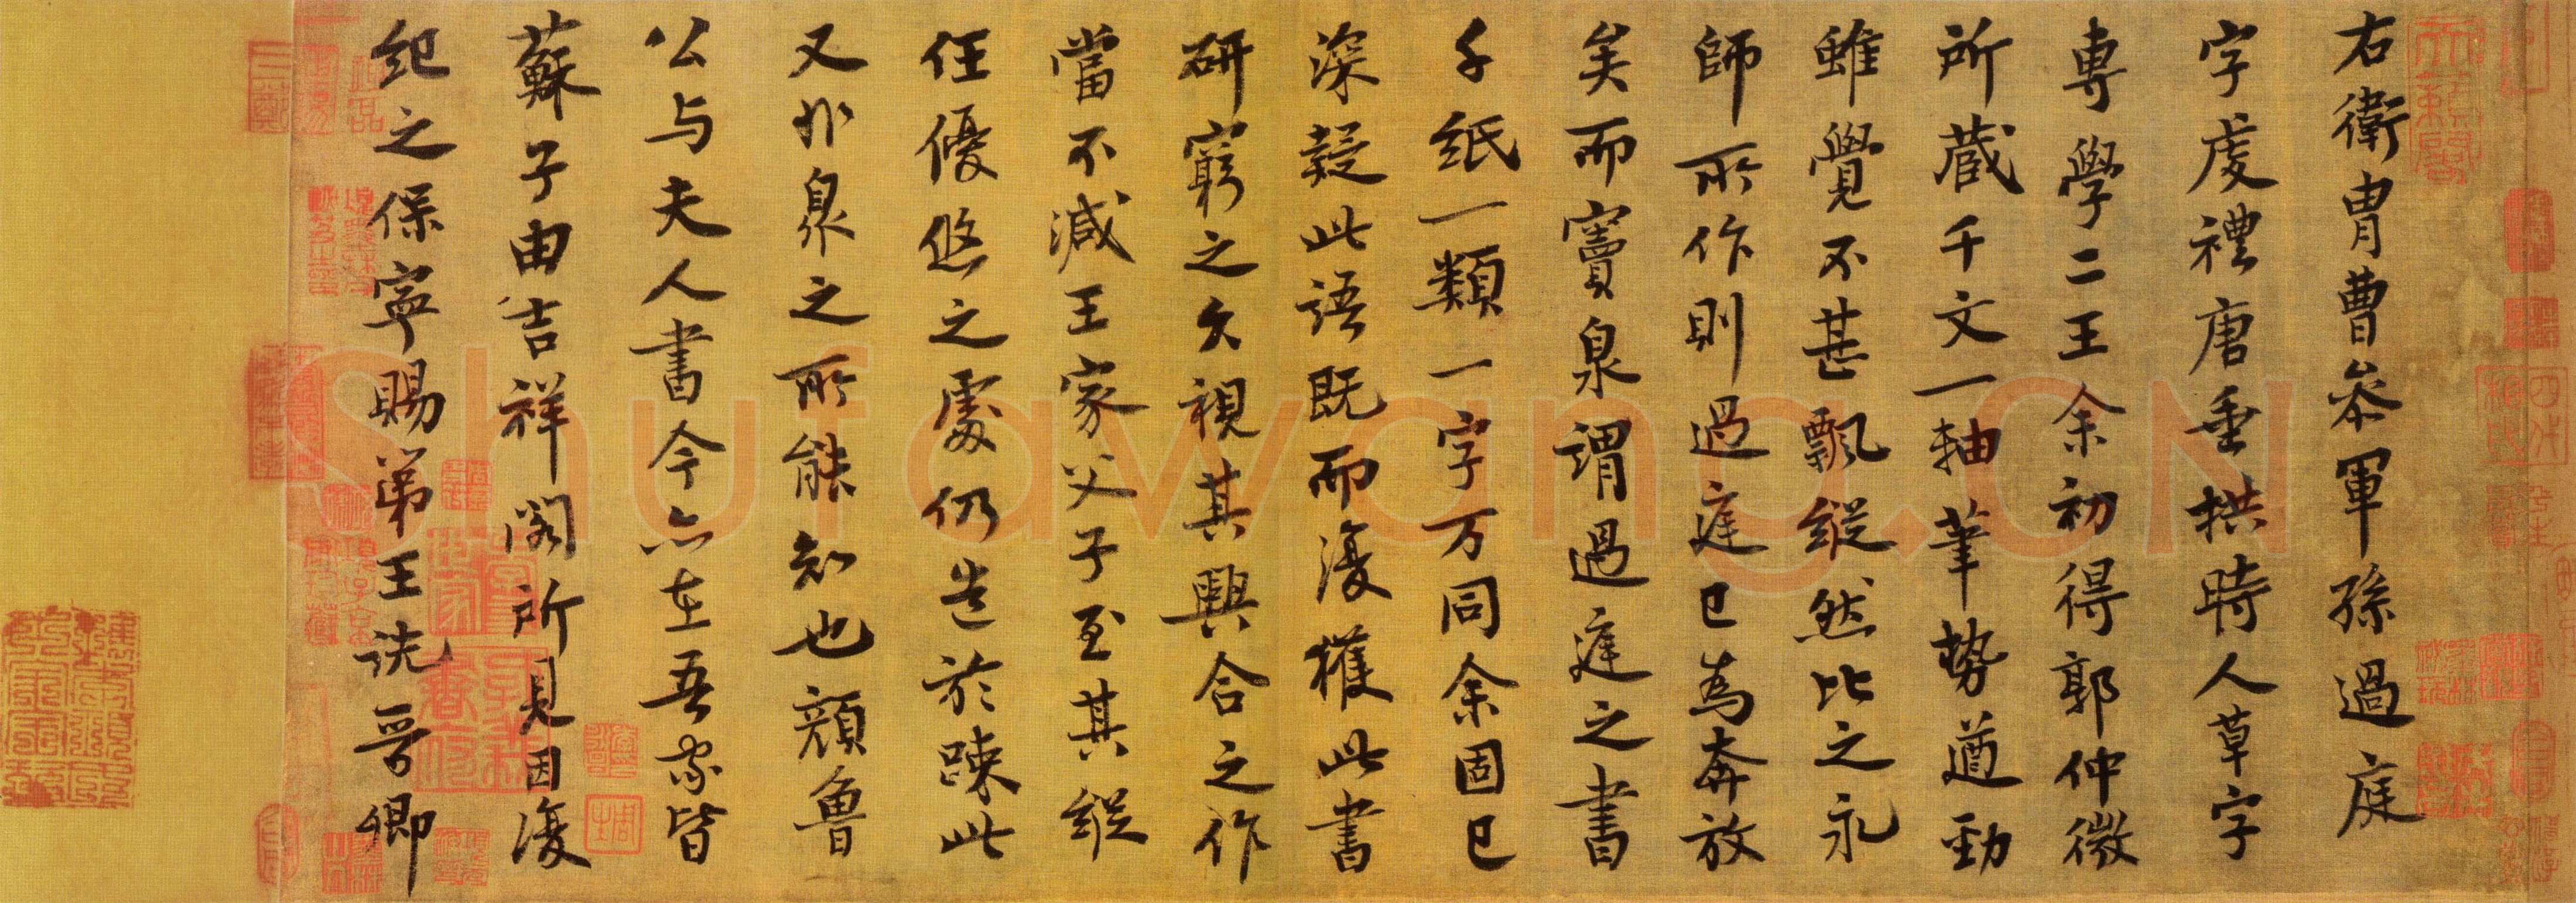 右衛冑曹參軍孫過庭
字虔禮唐垂拱時人草字
専學二王余初得郭仲微
所藏千文一軸筆勢遒勁
雖覺不甚飄縱然比之永
師所作則過庭已為奔放
矣而竇泉謂過庭之書
千紙一類一字万同余固已
深疑此語既而復獲此書
研窮之久視其興合之作
當不減王家父子至其縱
任優悠之處仍造於疎此
又非泉之所能知也顔魯
公与夫人書今亦在吾家皆
蘇子由吉祥閣所見因復
紀之保寧賜第王詵晉卿
Shufawang.CN